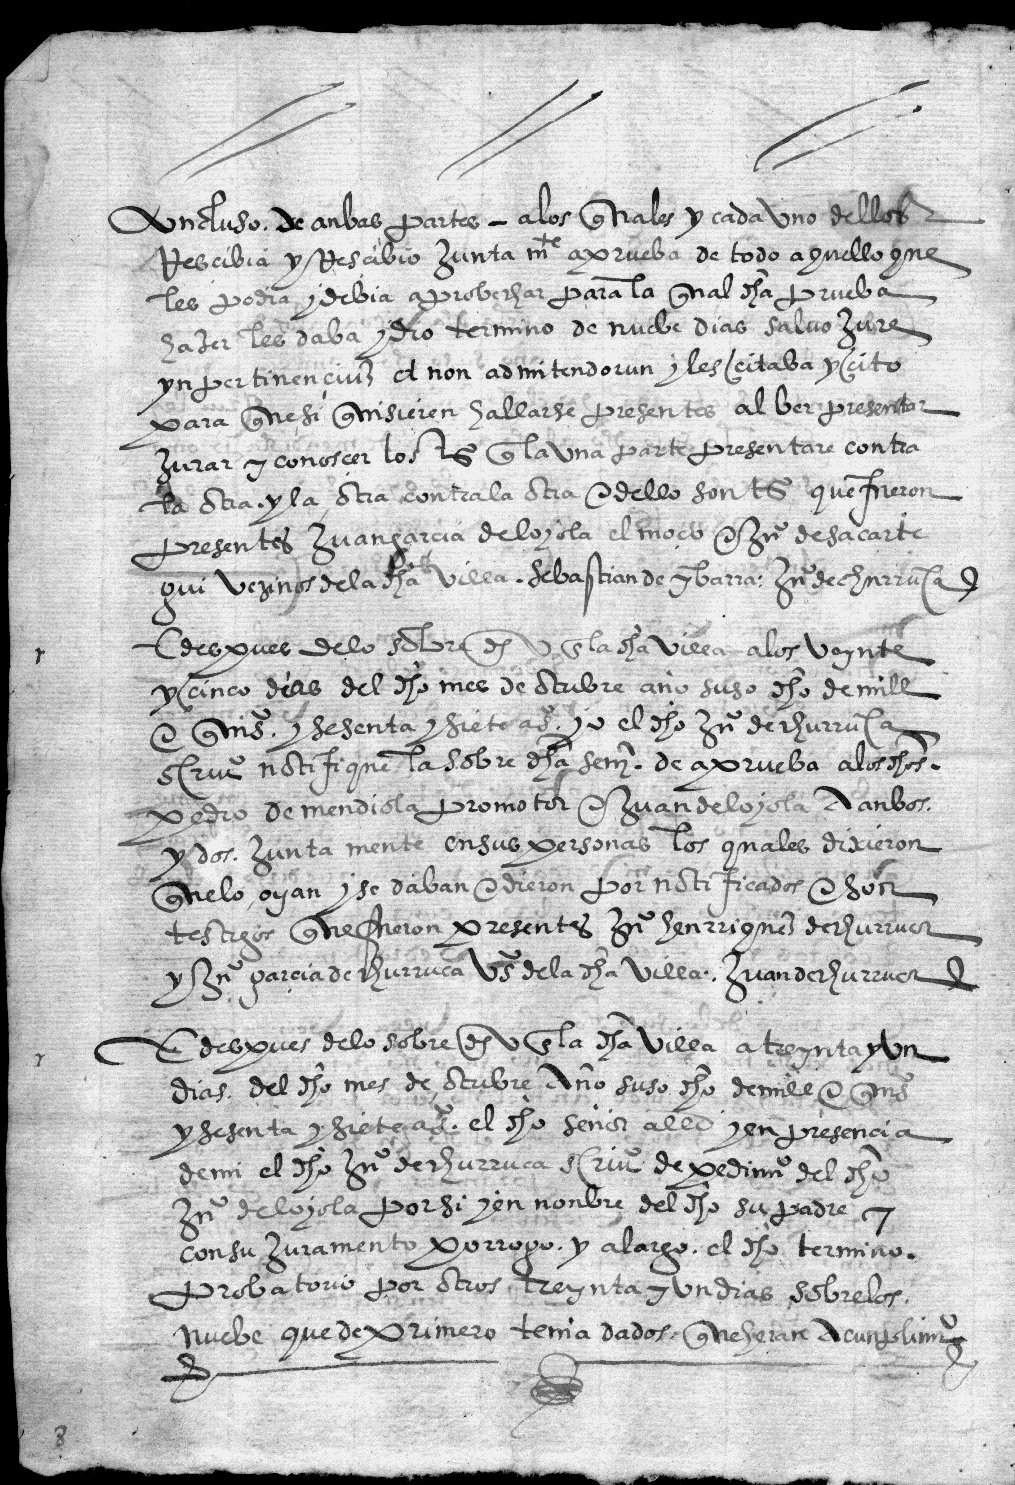 Concluso. de anbas partes - a los quales y cada uno dellos
Rescibia y Rescibio Junta mte a prueba de todo aquello que
les podia y debia aprobechar para la qual dha prueba
hazer les daba y dio termino de nuebe dias salvo Jure
ynpertinencium et non admitendorun y les citaba y cito
para que si quisieren hallarse presentes al ber presentar
Jurar y conoscer los ts q la una parte presentare contra
la otra. y la otra contra la otra e dello son ts que fueron
presentes Juan garcia de loyola el moço e Jno de sacarte
gui vezinos de la dha villa. sebastian de ybarra: Jno de churruca
E despues de lo sobre dho en la dha villa a los veynte
y cinco dias del dho mes de otubre año suso dho de mill
e quis. y sesenta y siete as. yo el dho Jno de churruca
scriuo notifique la sobre dha sema. de a prueba a los dhos.
pedro de mendiola promotor e Juan de loyola A anbos.
y dos. Junta mente en sus personas los quales dixieron
que lo oyan y se daban e dieron por notificados e son
testigos que fueron presentes Jno henrriquez de churruca
y Jno garcia de churruca vs de la dha villa. Juan de churruca
E despues de lo sobre dho en la dha villa a treynta y un
dias. del dho mes de otubre Año suso dho de mill e quis
y sesenta y siete as. el dho señor alld y en presencia
de mi el dho Jno de churruca scriuo de pedimio del dho
Jno de loyola por si y en nonbre del dho su padre y
con su Juramento porrogo. y alargo. el dho termino.
probatorio por otros treynta y un dias sobre los.
nuebe que de primero tenia dados. que heran A cunplimio
8